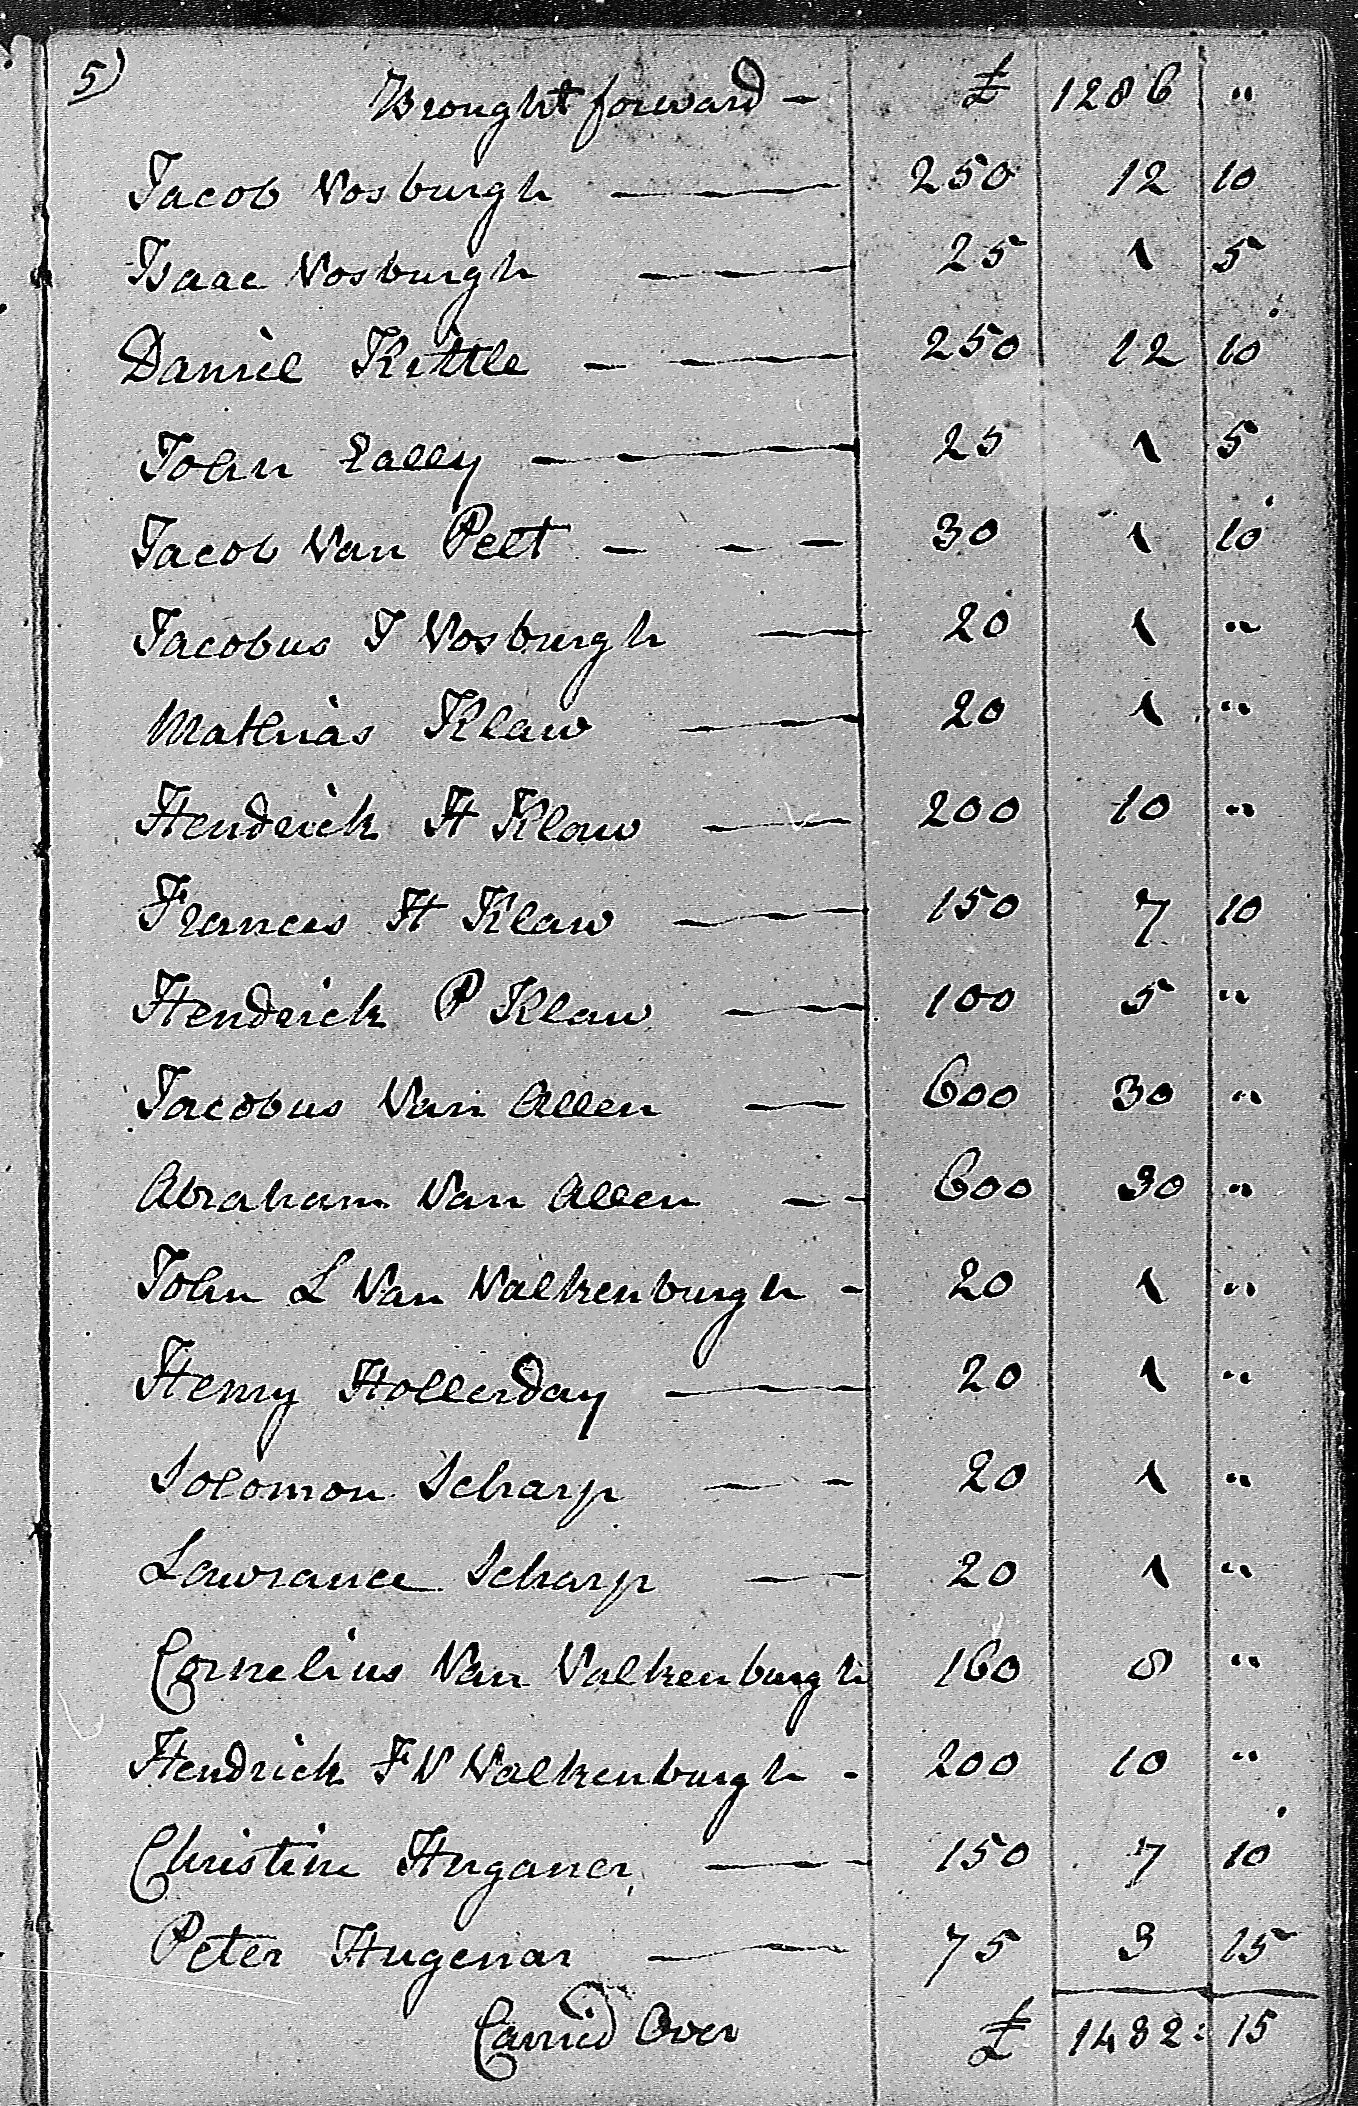 5) Brought forward - £ 1286 "
Jacob Vosburgh — 250 12 10
Isaac Vosburgh — 25 1 5
Daniel Kittle — 250 12 10
John Lally — 25 1 5
Jacob Van Pelt — 30 1 10
Jacobus J Vosburgh — 20 1 "
Mathias Klaw — 20 1 "
Hendrick H Klaw — 200 10 "
Francis H Klaw — 150 7 10
Hendrick P Klaw — 100 5 "
Jacobus Van Allen — 600 30 "
Abraham Van Allen — 600 30 "
John L Van Valkenburgh - 20 1 "
Henry Hollerday — 20 1 "
Solomon Scharp — 20 1 "
Lawrance Scharp — 20 1 "
Cornelius Van Valkenburgh 160 8 "
Hendrick J V Valkenburgh - 200 10 "
Christine Huganer — 150 7 10
Peter Hugenar — 75 3 15
Carried Over £ 1432: 15